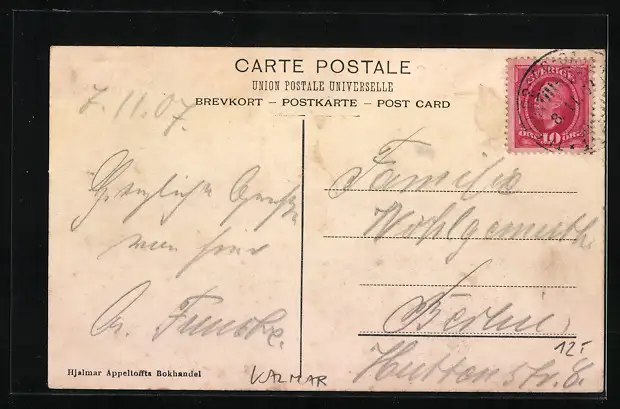 CARTE POSTALE
UNION POSTALE UNIVERSELLE
BREVKORT – POSTKARTE – POST CARD
SVERIGE
ÖRE 10 ÖRE
7.11.07.
Herzliche Grüße
von hier
Familie
Wohlgemuth
Berlin
Huttenstr. 8.
12.-
Hjalmar Appeltoffts Bokhandel
KALMAR